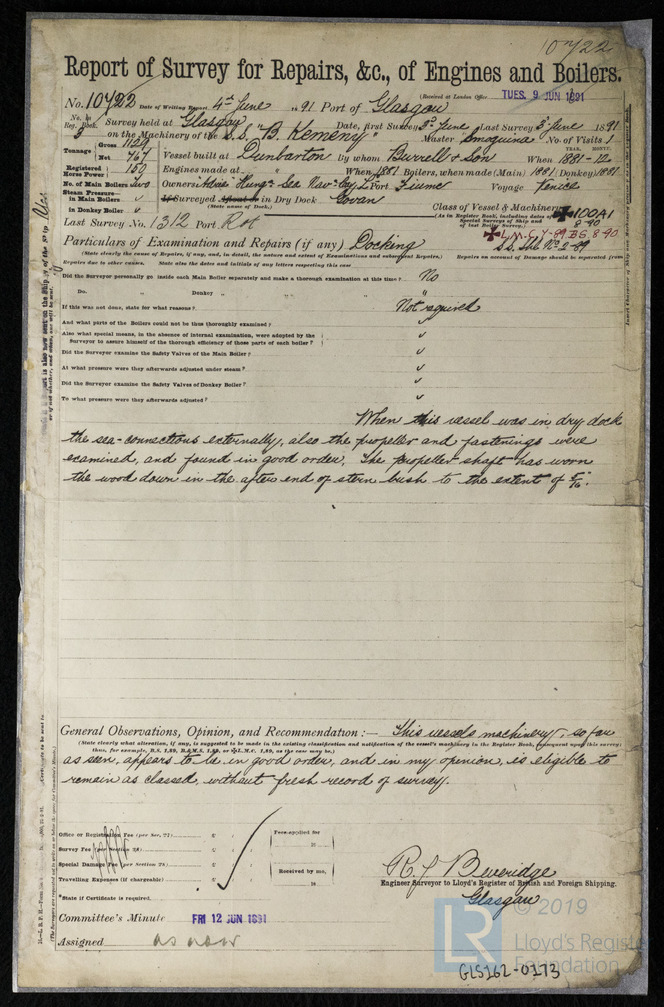 10722
Report of Survey for Repairs, &c., of Engines and Boilers.
(Received at London Office TUES. 9 JUN 1891
No. 10722 Date of Writing Report 4th June 1891 Port of Glasgow
No. in Reg. Book. Survey held at Glasgow Date, first Survey 3rd June Last Survey 3rd June 1891
on the Machinery of the S.S. "B. Kemeny" Master Smoquina No. of Visits 1
Tonnage Gross 1129 Net 767
Vessel built at Dunbarton By whom Burrell & Son When 1881-12
Registered Horse Power 150 Engines made at " When 1881 Boilers, when made (Main) 1881 (Donkey) 1881
No. of Main Boilers Two Owners "Adria" Hung. Sea Nav. Coy Ld Port Fiume Voyage Venice
Steam Pressure in Main Boilers
in Donkey Boiler
If Surveyed Afloat or in Dry Dock Govan
(State name of Dock.)
Class of Vessel & Machinery 100A1
(As in Register Book, including dates of Special Surveys of Ship and of last Boiler Survey.) 8-90
L.M.C. 7-89 B.S. 8-90
Last Survey No. 1312 Port Rot
S.S. No. 2-89
Particulars of Examination and Repairs (if any) Docking
Repairs on account of Damage should be separated from
Repairs due to other causes. State also the dates and initials of any letters respecting this case
Did the Surveyor personally go inside each Main Boiler separately and make a thorough examination at this time? No
Do. " Donkey " " " "
If this was not done, state for what reasons? Not required
And what parts of the Boilers could not be thoroughly examined? "
Also what special means, in the absence of internal examination, were adopted by the
Surveyor to assure himself of the thorough efficiency of those parts of each boiler? "
Did the Surveyor examine the Safety Valves of the Main Boiler? "
At what pressure were they afterwards adjusted under steam? "
Did the Surveyor examine the Safety Valves of Donkey Boiler? "
To what pressure were they afterwards adjusted? "
When this vessel was in dry dock
the sea-connections externally, also the propeller and fastenings were
examined, and found in good order. The propeller shaft has worn
the wood down in the after end of stern bush to the extent of 5/16".
General Observations, Opinion, and Recommendation :— This vessels machinery, so far
(State clearly what alteration, if any, is suggested to be made in the existing classification and notification of the vessel's machinery in the Register Book, consequent upon this survey;
thus, for example, B.S. 1,89, B.&M.S. 1,89, or L.M.C. 1,89, as the case may be.)
as seen, appears to be in good order, and in my opinion, is eligible to
remain as classed, without fresh record of survey.
Office or Registration Fee (per Sec. 27)
Survey Fee (per Section 28)
Special Damage Fee (per Section 28)
Travelling Expenses (if chargeable)
Fees applied for
Received by me,
*State if Certificate is required.
R. J. Beveridge
Engineer Surveyor to Lloyd's Register of British and Foreign Shipping.
Glasgow
Committee's Minute FRI 12 JUN 1891
Assigned as now
LR
© 2019
Lloyd's Register
Foundation
GLS162-0173